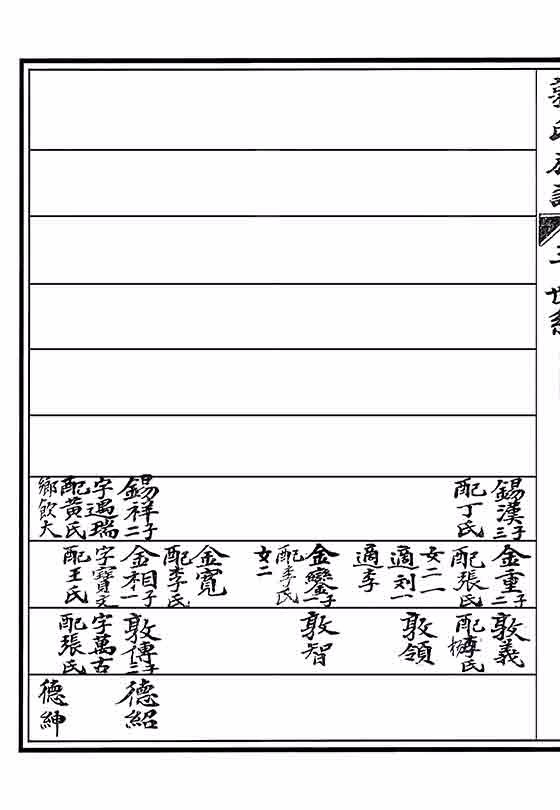 世系
錫漢 子三
配丁氏
錫祥 子二
字遇瑞
配黃氏
鄉飲大
金重 子二
配張氏
女二 一
適刘 一
適李
金鑾 子一
配李氏
女二
金寬
配李氏
金相 子一
字寶元
配王氏
敦義
氏
敦領
敦智
敦傳 子二
字萬古
配張氏
德紹
德紳